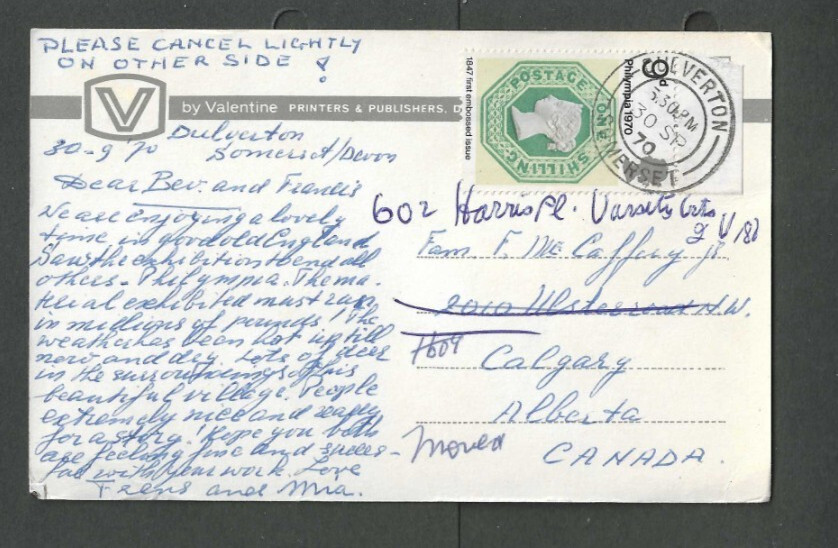 PLEASE CANCEL LIGHTLY
ON OTHER SIDE !
V by Valentine PRINTERS & PUBLISHERS, D
Dulverton
30-9-70 Somerset/Devon
Dear Bev. and Francis
We are enjoying a lovely
time in good old England
Saw the exhibition to end all
others - Philympia. The ma-
terial exhibited must run
in millions of pounds! The
weather has been hot up till
now and dry. Lots of deer
in the surroundings of this
beautiful village. People
extremely nice and ready
for a story! Hope you both
are feeling fine and succes-
ful with your work. Love
Frans and Mia.
1847 first embossed issue
POSTAGE
ONE
SHILLING
9P
Philympia 1970
DULVERTON
5.30PM
30 SP
70
SOMERSET
602 Harris Pl. Varsity
Fam. F. Mc Caffery Jr.
2010 N.W.
Calgary
Alberta
Moved
CANADA.